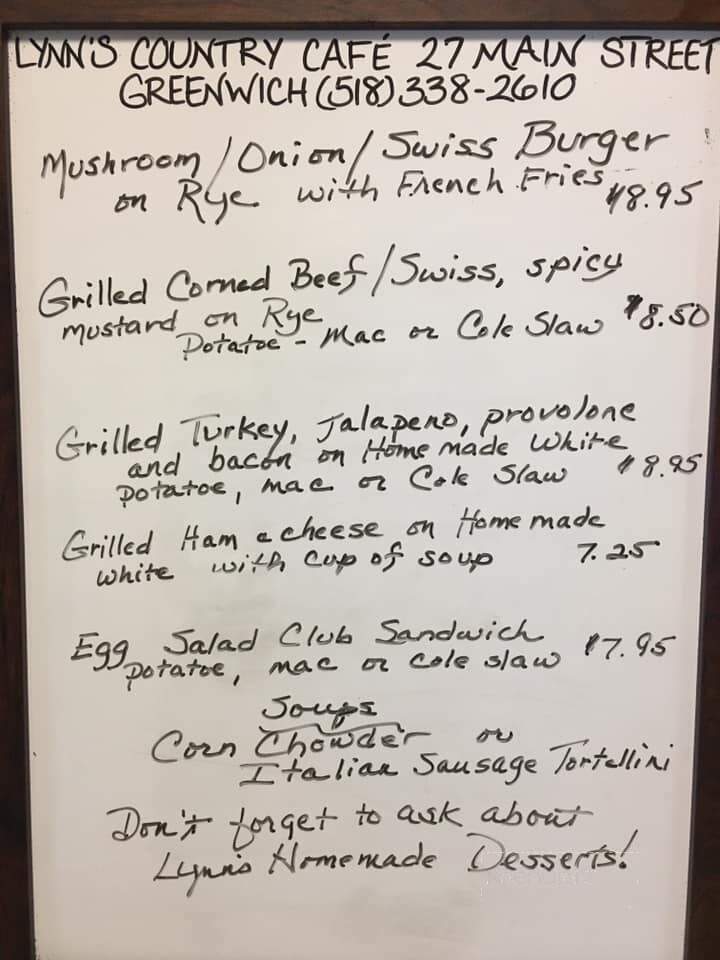 LYNN'S COUNTRY CAFÉ 27 MAIN STREET
GREENWICH (518) 338-2610
Mushroom/Onion/Swiss Burger
on Rye with French Fries $8.95
Grilled Corned Beef/Swiss, spicy
mustard on Rye
Potatoe - Mac or Cole Slaw $8.50
Grilled Turkey, Jalapeno, provolone
and bacon on Home made White
potatoe, mac or Cole Slaw $8.95
Grilled Ham & cheese on Home made
white with cup of soup 7.25
Egg Salad Club Sandwich
potatoe, mac or cole slaw $7.95
Soups
Corn Chowder or
Italian Sausage Tortellini
Don't forget to ask about
Lynn's Homemade Desserts!